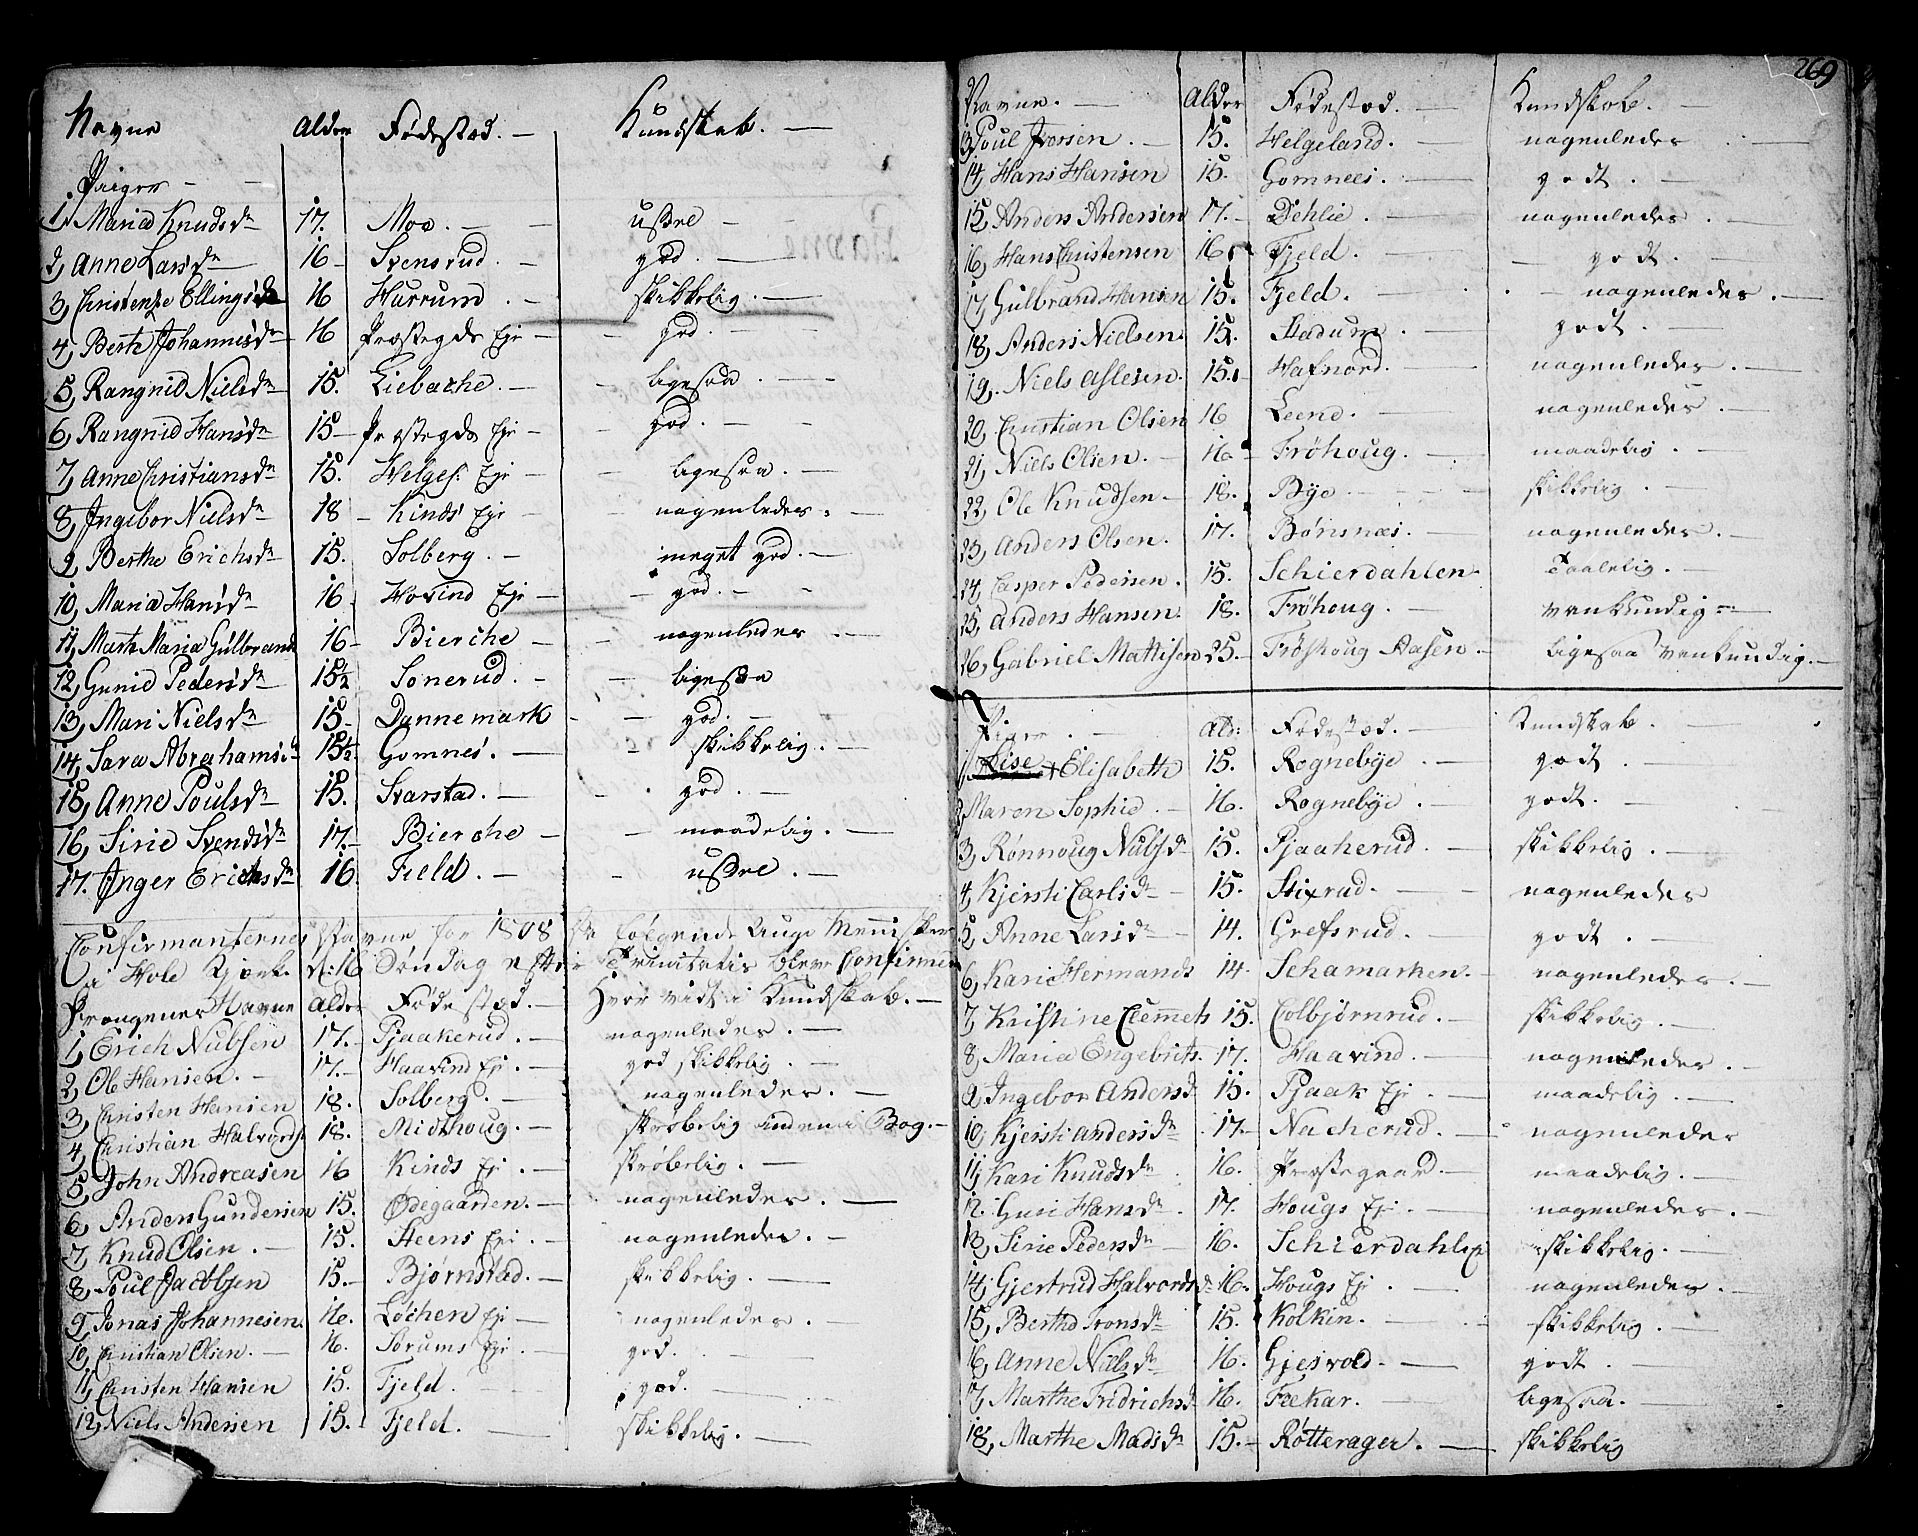 Navne Alder Fødestæd. Kundskab.
Piiger
1, Maria Knudsdr 17. Moe. usßel
2, Anne Larsdr 16 Svensrud. god.
3, Christenze Ellingsdr 16 Hurrum. skikkelig.
4, Berte Johannisdr 16 Præstegds Eje god.
5, Rangnid Nielsdr 15. Liebache. ligesaa.
6, Rangnid Hansdr 15 Præstegds Eje god.
7, Anne Christiansdr 15. Helges: Eje ligesaa.
8, Ingebor Nielsdr 18 Kinds Eje nogenledes.
9, Berthe Erichsdr 15. Solberg. meget god.
10, Maria Hansdr 16 Hovind Eje god.
11, Marte Maria Gulbrands 16 Bierche nogenledes.
12, Gunid Pedersdr 15½ Sonerud. ligesaa
13, Mari Nielsdr 15. Dannemark god.
14, Sara Abrahamsd 15½ Gomnes. skikkelig.
15, Anne Poulsdr 15. Svarstad. god.
16, Sirie Svendsdr 17. Bierche maadelig.
17. Inger Erichsdr 16 Field. usßel.
Confirmanternes Navne for 1808 følgende Unge Mennisker
i Hole Kirke d: 16 Søndag efter Trinitatis blev Confirmer
Drengenes Navne Alder Fødestæd. Hvor vidt i Kundskab.
1, Erich Nubsen 17. Pjaakerud. nogenledes.
2, Ole Hansen. 17. Haavind Ej. god skikkelig.
3, Christen Hansen 18. Solberg. nogenledes.
4, Christian Halvords 18. Midthoug. skrøbelig inden i Bog.
5, John Andreasen 16 Kinds Ej. skrøbelig.
6, Anders Gundersen 15. Ødegaarden. nogenledes.
7, Knud Olsen. 15. Steens Eje. nogenledes.
8, Poul Jacobsen 15. Bjørnstad. skikkelig.
9, Jonas Johannesen. 16. Løchen Eje nogenledes.
10, Christian Olsen. 16. Sørums Eje. god.
11, Christen Hansen 15. Fjeld. god.
12, Niels Andersen 15. Fjeld. skikkelig.
269
Navne. Alder Fødestæd. Kundskab.
13, Poul Iversen. 15. Helgeland. nogenledes
14, Hans Hansen 15. Gomnes. godt.
15, Anders Andersen 17. Dehlie. nogenledes.
16, Hans Christensen 16 Fjeld. godt.
17, Gulbrand Hansen 15. Fjeld. nogenledes.
18, Anders Nielsen. 15. Stadum. godt.
19, Niels Aslesen. 15. Hafnord. nogenledes.
20, Christian Olsen 16 Leend. nogenledes.
21, Niels Olsen. 16 Frøhoug. maadelig.
22, Ole Knudsen 18. Bye. skikkelig.
23, Anders Olsen. 17. Bønsnæs. nogenledes.
24, Casper Pedersen. 15. Schierdahlen taalelig.
25, Anders Hansen. 18. Frøhoug. venkundig
26, Gabriel Mattisen 25. Frøshoug Aasen. ligesaa venkundig.
Piger. Ald: Fødestæd. Kundskab.
1, Lise Elisabeth 15. Rognebye. godt.
2, Maren Sophie. 16. Rognebye. godt.
3, Rønnoug Nubsd 15. Pjaakerud. skikkelig.
4, Kjersti Carlsdr 15. Stixrud. nogenledes
5, Anne Larsdr 14. Grefsrud. godt.
6, Kari Hermands 14. Schamarken. nogenledes.
7, Kristine Clemmets 15. Colbjørnrud. skikkelig.
8, Maria Engebrits. 17. Haavind. nogenledes.
9, Ingebor Andersd 15. Pjaak Eje. maadelig.
10, Kjersti Andersdr 17. Nacherud. nogenledes
11, Kari Knudsdr 16. Præstegaard. maadelig.
12. Guri Hansdr. 17. Hougs Ej. nogenledes.
13, Sirie Pedersdr 16. Schierdahlen skikkelig.
14, Gjertrud Halvordsd 16. Hougs Ej. nogenledes.
15, Berthe Ivarsdr 15. Kolkin. skikkelig.
16, Anne Nielsdr. 16. Gjesvold. godt.
17, Marthe Fridrichsd 16. Feekar. ligesaa.
18, Marthe Madsdr 15. Røtterager. skikkelig